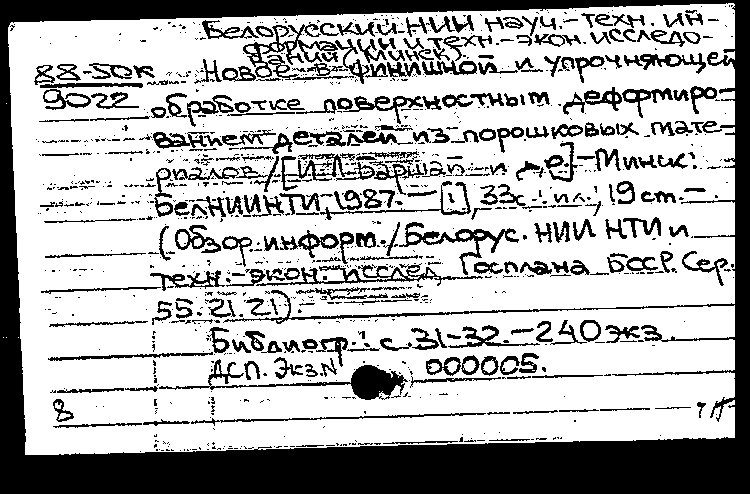 Белорусский НИИ науч.-техн. ин-
формации и техн.-экон. исследо-
ваний (Минск).
88-50к Новое в финишной и упрочняющей
9022 обработке поверхностным деформиро-
ванием деталей из порошковых мате-
риалов / [И.Л. Баршай и др.] - Минск:
БелНИИНТИ, 1987. - [1], 33с.: ил.; 19 cm. -
(Обзор. информ. / Белорус. НИИ НТИ и
техн.-экон. исслед. Госплана БССР. Сер.
55.21.21).
Библиогр.: с. 31-32. - 240 экз.
ДСП. Экз N 000005.
8